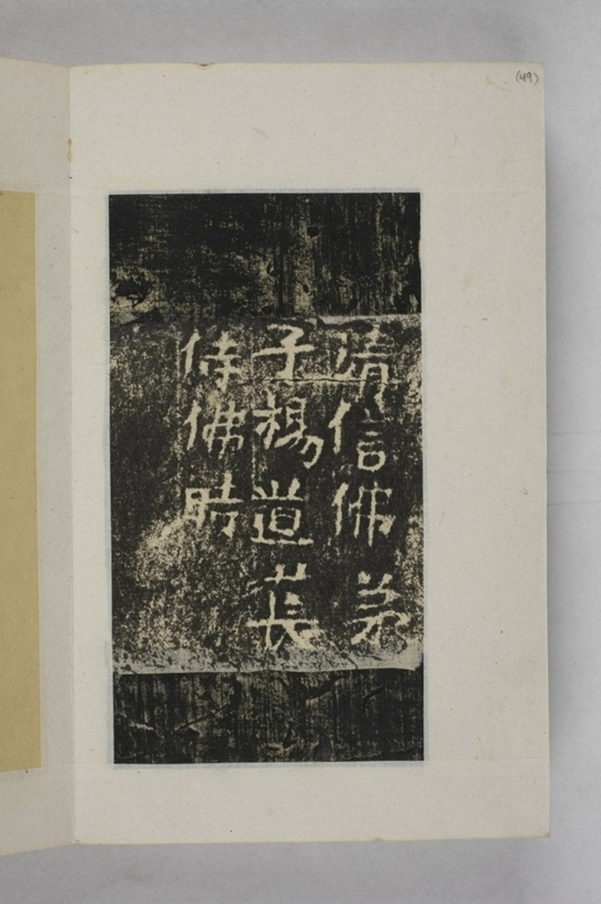 清信佛弟
子楊道萇
侍佛時
(49)